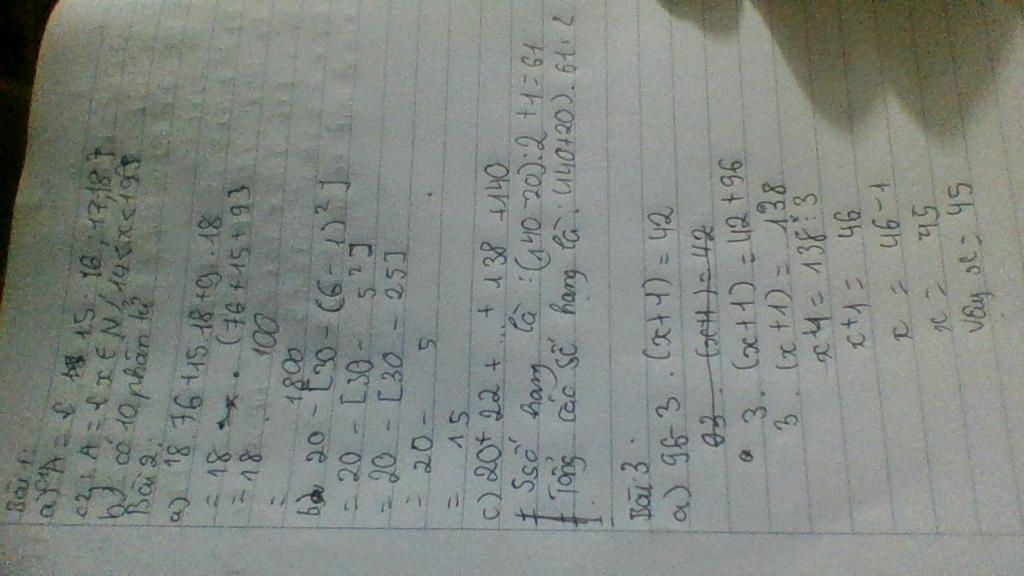 Bài 1:
a) A = { 15, 16, 17, 18 }
c2: A = { x ∈ N / 14 < x < 19 }
b) có 10 phần tử
Bài 2:
a) 18.76 + 15.18 + 9.18
= 18 . (76 + 15 + 9)
= 18 . 100
= 1800
b) 20 - [30 - (6 - 1)²]
= 20 - [30 - 5²]
= 20 - [30 - 25]
= 20 - 5
= 15
c) 20 + 22 + ... + 138 + 140
Số hạng là : (140-20):2 + 1 = 61
Tổng các số hạng là: (140+20).61:2
Bài 3:
a) 96 - 3 . (x+1) = 42
93 (x+1) = 42
3 . (x+1) = 42 + 96
3 . (x+1) = 138
x+1 = 138 : 3
x+1 = 46
x = 46 - 1
x = 45
Vậy x = 45